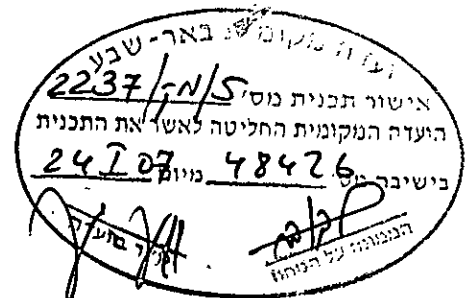 ועדה מקומית באר-שבע
אישור תכנית מס' 5/מק/2237
הועדה המקומית החליטה לאשר את התכנית
בישיבה מס' 48426 מיום 24 I 07